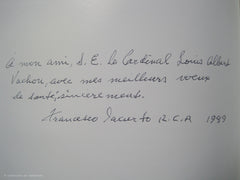 à mon ami, S. E. le Cardinal Louis Albert
Vachon, avec mes meilleurs voeux
de santé, sincèrement.
Francesco Iacurto R.C.A 1999